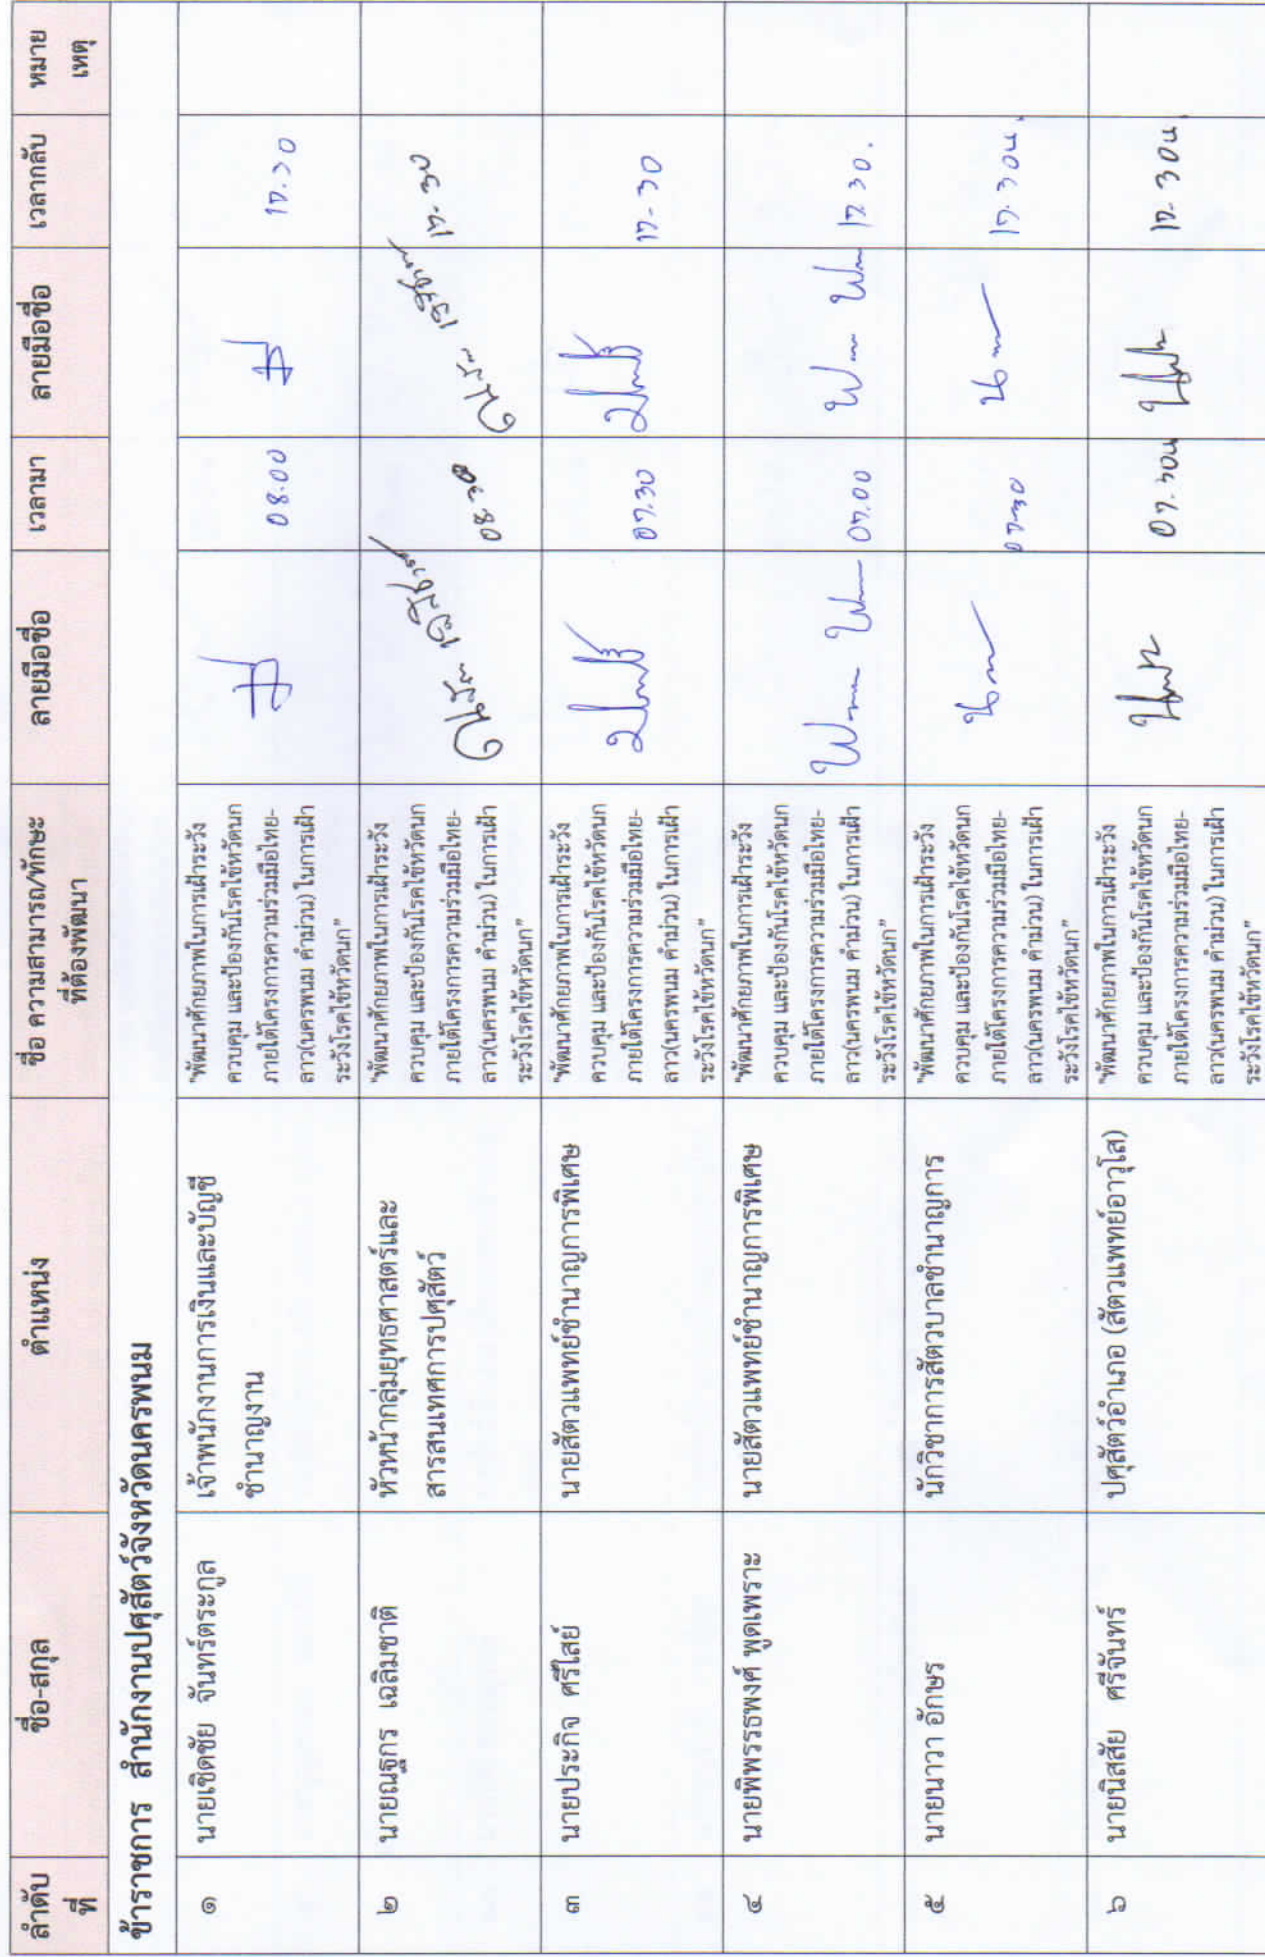 ลำดับ
ที่
ชื่อ-สกุล
ตำแหน่ง
ชื่อ ความสามารถ/ทักษะ
ที่ต้องพัฒนา
ลายมือชื่อ
เวลามา
ลายมือชื่อ
เวลากลับ
หมาย
เหตุ
ข้าราชการ สำนักงานปศุสัตว์จังหวัดนครพนม
๑
นายเชิดชัย จันทร์ตระกูล
เจ้าพนักงานการเงินและบัญชี
ชำนาญงาน
"พัฒนาศักยภาพในการเฝ้าระวัง
ควบคุม และป้องกันโรคไข้หวัดนก
ภายใต้โครงการความร่วมมือไทย-
ลาว(นครพนม คำม่วน) ในการเฝ้า
ระวังโรคไข้หวัดนก"
08.00
17.30
๒
นายณฐกร เฉลิมชาติ
หัวหน้ากลุ่มยุทธศาสตร์และ
สารสนเทศการปศุสัตว์
"พัฒนาศักยภาพในการเฝ้าระวัง
ควบคุม และป้องกันโรคไข้หวัดนก
ภายใต้โครงการความร่วมมือไทย-
ลาว(นครพนม คำม่วน) ในการเฝ้า
ระวังโรคไข้หวัดนก"
08.30
17-30
๓
นายประกิจ ศรีไสย์
นายสัตวแพทย์ชำนาญการพิเศษ
"พัฒนาศักยภาพในการเฝ้าระวัง
ควบคุม และป้องกันโรคไข้หวัดนก
ภายใต้โครงการความร่วมมือไทย-
ลาว(นครพนม คำม่วน) ในการเฝ้า
ระวังโรคไข้หวัดนก"
07.30
17-30
๔
นายพิพรรธพงศ์ พูดเพราะ
นายสัตวแพทย์ชำนาญการพิเศษ
"พัฒนาศักยภาพในการเฝ้าระวัง
ควบคุม และป้องกันโรคไข้หวัดนก
ภายใต้โครงการความร่วมมือไทย-
ลาว(นครพนม คำม่วน) ในการเฝ้า
ระวังโรคไข้หวัดนก"
07.00
17.30.
๕
นายนาวา อักษร
นักวิชาการสัตวบาลชำนาญการ
"พัฒนาศักยภาพในการเฝ้าระวัง
ควบคุม และป้องกันโรคไข้หวัดนก
ภายใต้โครงการความร่วมมือไทย-
ลาว(นครพนม คำม่วน) ในการเฝ้า
ระวังโรคไข้หวัดนก"
07-30
17.30น.
๖
นายนิสสัย ศรีจันทร์
ปศุสัตว์อำเภอ (สัตวแพทย์อาวุโส)
"พัฒนาศักยภาพในการเฝ้าระวัง
ควบคุม และป้องกันโรคไข้หวัดนก
ภายใต้โครงการความร่วมมือไทย-
ลาว(นครพนม คำม่วน) ในการเฝ้า
ระวังโรคไข้หวัดนก"
07.30น
17-30น.